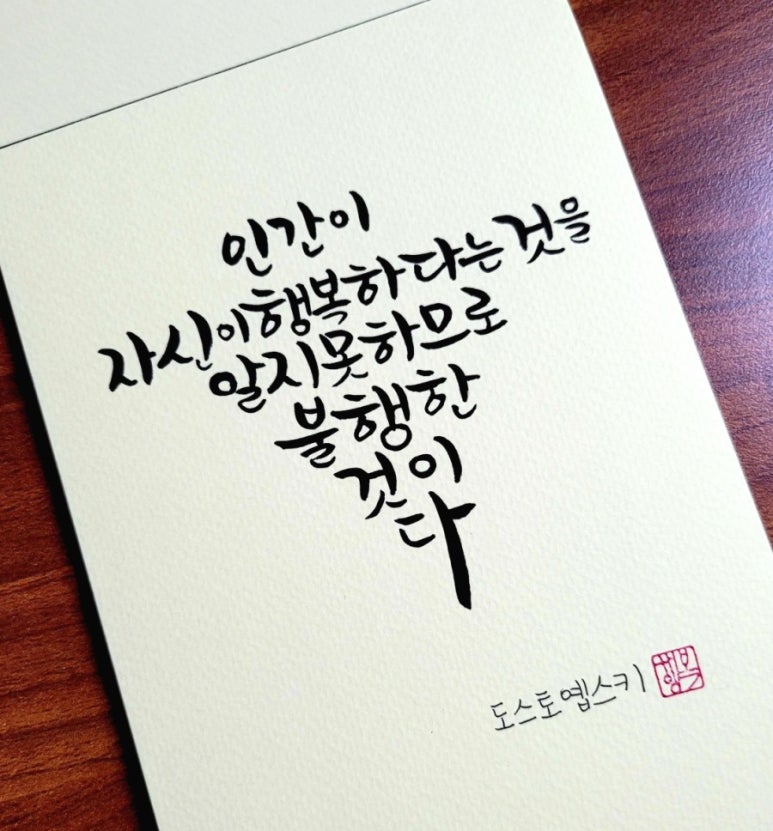 인간이
자신이 행복하다는 것을
알지 못하므로
불행한
것이
다
도스토옙스키
행복